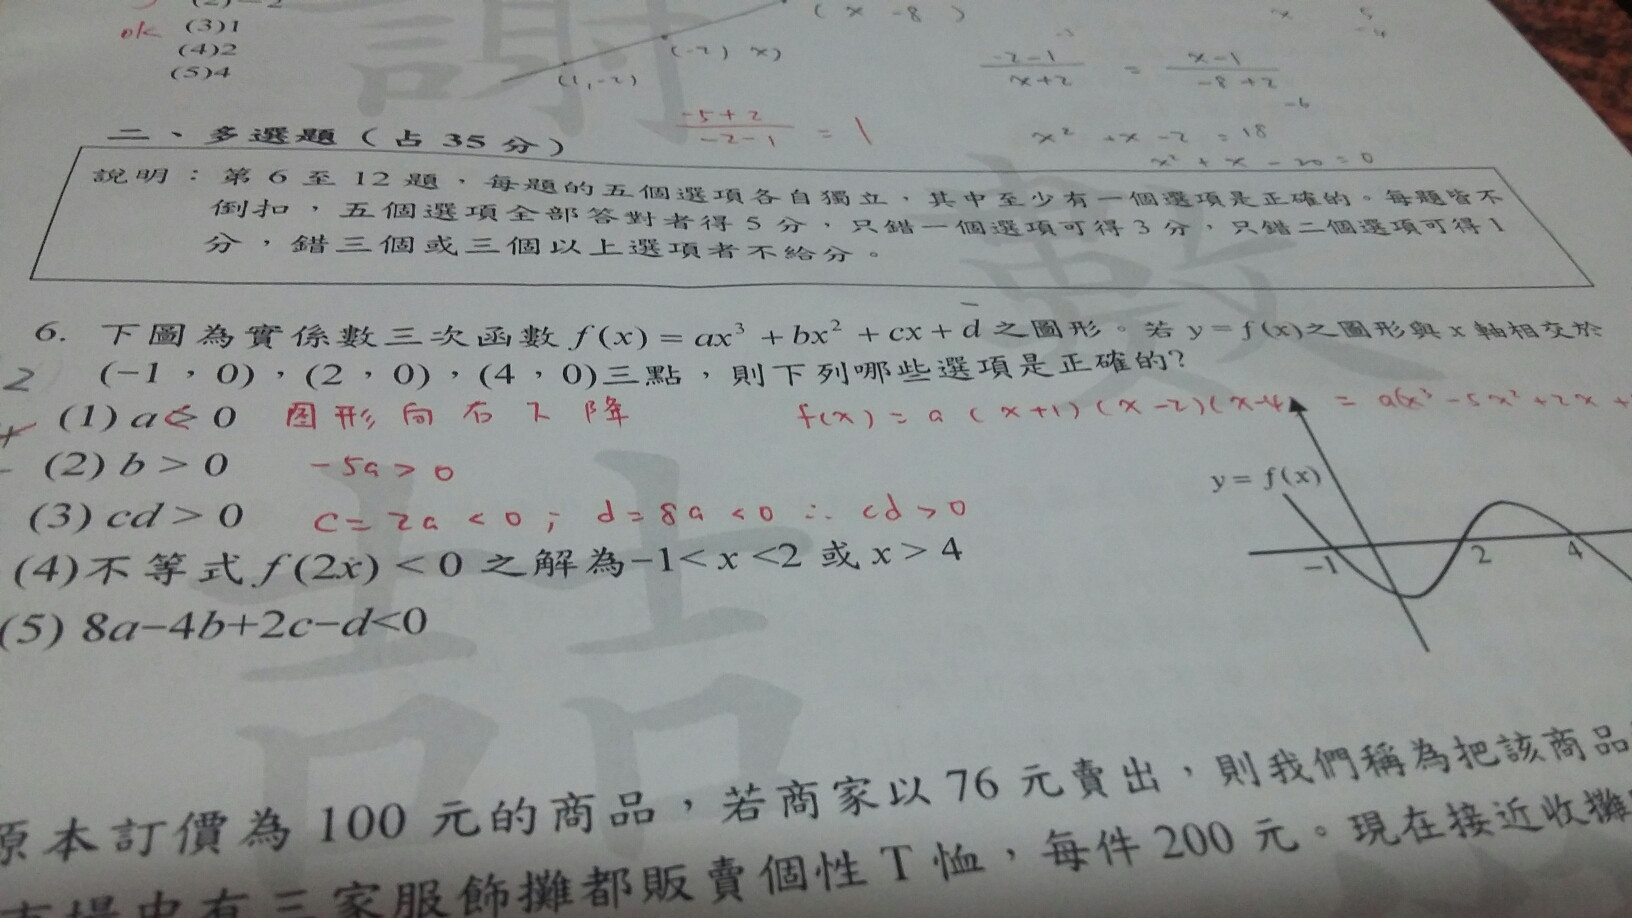 ok (3)1
(4)2
(5)4
(x -8 )
(-2, x)
(1,-2)
-2-1 / x+2 = x-1 / -8+2
-6
-5+2 / -2-1 = 1
x² +x -2 = 18
x² + x - 20 = 0
二、多選題(占 35 分)
說明：第 6 至 12 題，每題的五個選項各自獨立，其中至少有一個選項是正確的。每題皆不
倒扣，五個選項全部答對者得 5 分，只錯一個選項可得 3 分，只錯二個選項可得 1
分，錯三個或三個以上選項者不給分。
6. 下圖為實係數三次函數 f(x) = ax³ + bx² + cx + d 之圖形。若 y = f(x)之圖形與 x 軸相交於
2 (−1，0)，(2，0)，(4，0)三點，則下列哪些選項是正確的?
(1) a < 0 图形向右下降 f(x) = a (x+1)(x-2)(x-4) = a(x³ -5x² +2x +
(2) b > 0 -5a > 0
(3) cd > 0 c = 2a < 0 ; d = 8a < 0 ∴ cd > 0
(4)不等式 f(2x) < 0 之解為−1< x <2 或 x > 4
(5) 8a−4b+2c−d<0
y = f(x)
−1 2 4
原本訂價為 100 元的商品，若商家以 76 元賣出，則我們稱為把該商品
市場中有三家服飾攤都販賣個性 T 恤，每件 200 元。現在接近收攤